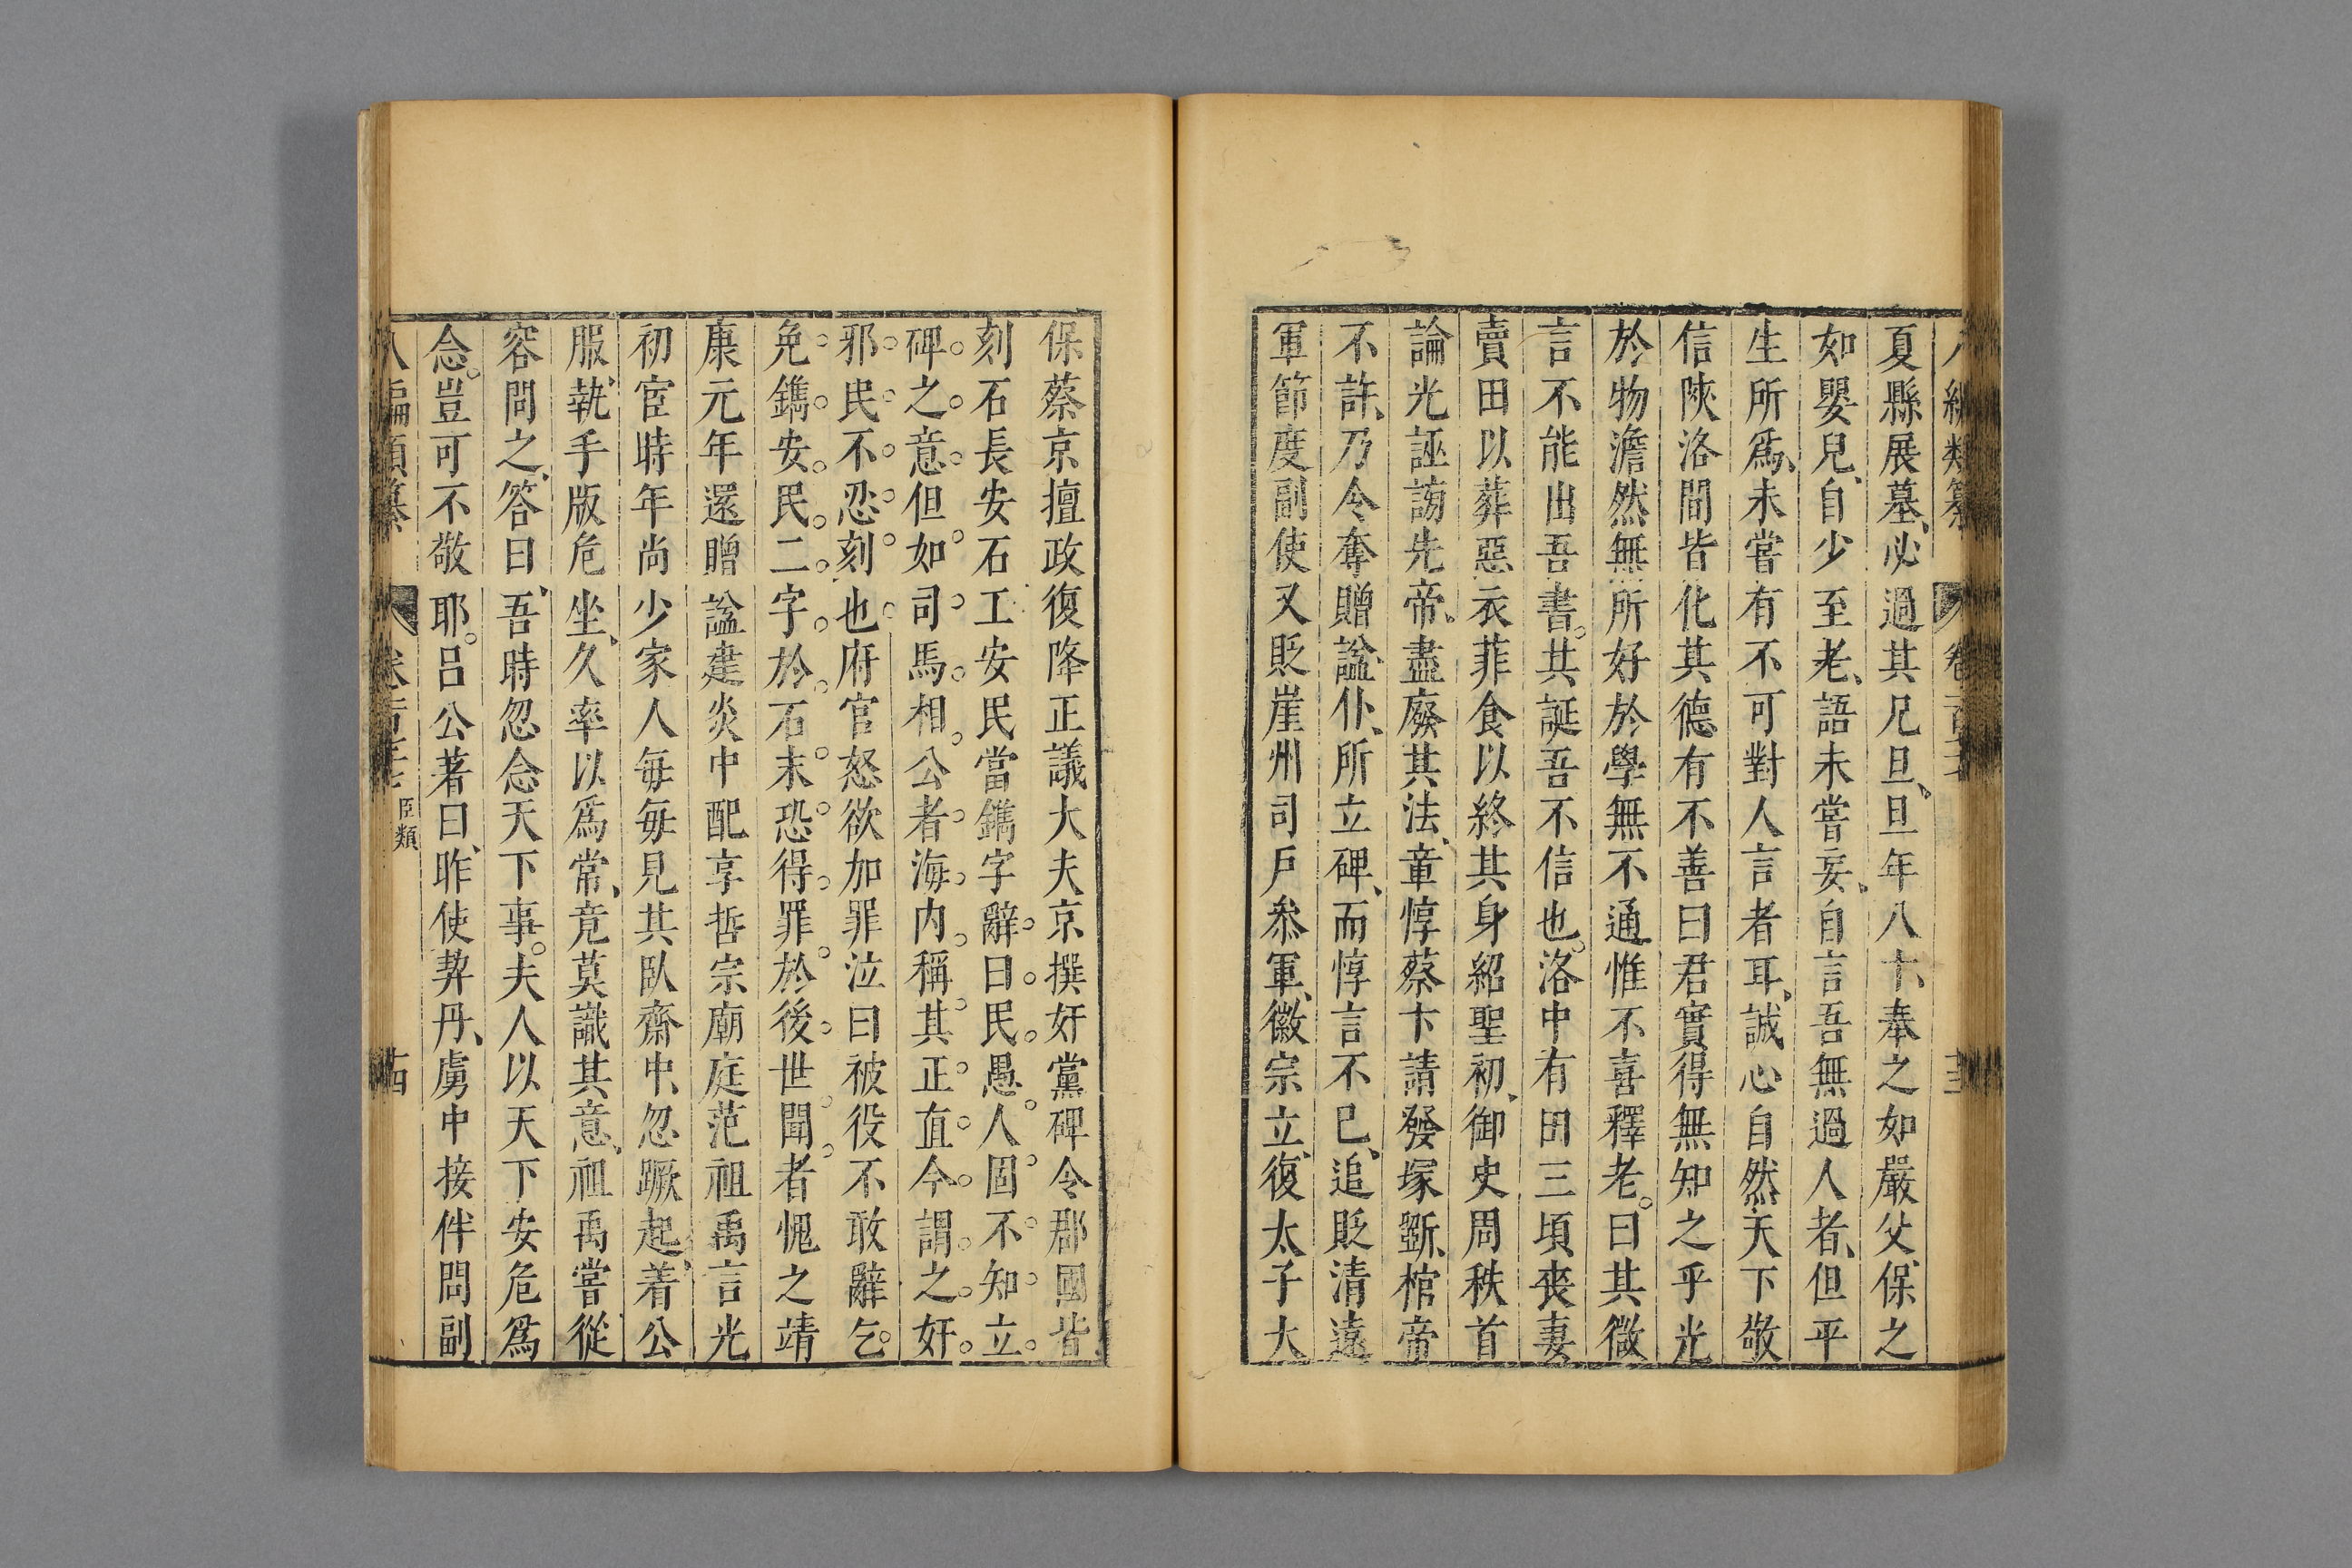 夏縣展墓必過其兄旦旦年八十奉之如嚴父保之
如嬰兒自少至老語未嘗妄自言吾無過人者但平
生所爲未嘗有不可對人言者耳誠心自然天下敬
信陝洛間皆化其德有不善曰君實得無知之乎光
於物澹然無所好於學無不通惟不喜釋老曰其微
言不能出吾書其誕吾不信也洛中有田三頃喪妻
賣田以葬惡衣菲食以終其身紹聖初御史周秩首
論光誣謗先帝盡廢其法章惇蔡卞請發塚斲棺帝
不許乃令奪贈諡仆所立碑而惇言不已追貶清遠
軍節度副使又貶崖州司戶叅軍徽宗立復太子太
保蔡京擅政復降正議大夫京撰奸黨碑令郡國皆
刻石長安石工安民當鐫字辭曰民愚人固不知立
碑之意但如司馬相公者海内稱其正直今謂之奸
邪民不忍刻也府官怒欲加罪泣曰被役不敢辭乞
免鐫安民二字於石末恐得罪於後世聞者愧之靖
康元年還贈諡建炎中配享哲宗廟庭范祖禹言光
初宦時年尚少家人每每見其臥齋中忽蹶起着公
服執手版危坐久率以爲常竟莫識其意祖禹嘗從
容問之答曰吾時忽念天下事夫人以天下安危爲
念豈可不敬耶呂公著曰昨使契丹虜中接伴問副
八編類纂 臣類 十四